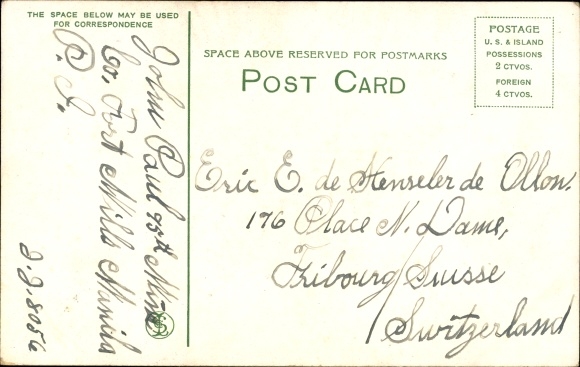 THE SPACE BELOW MAY BE USED
FOR CORRESPONDENCE
John Paul 95th Mine
Co. Fort Mills Manila
P. I.
J. J. 8056
SPACE ABOVE RESERVED FOR POSTMARKS
POST CARD
POSTAGE
U. S. & ISLAND
POSSESSIONS
2 CTVOS.
FOREIGN
4 CTVOS.
Eric E. de Henseler de Ollon.
176 Place N. Dame,
Fribourg/Suisse
/Switzerland